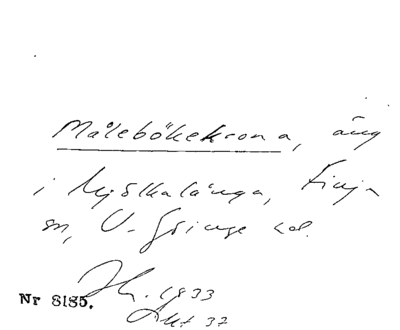 Målebökekrona, äng
i Mjölkalånga, Finja
sn, V. Göinge hd.
1933
Nr 8185.
Akt 37